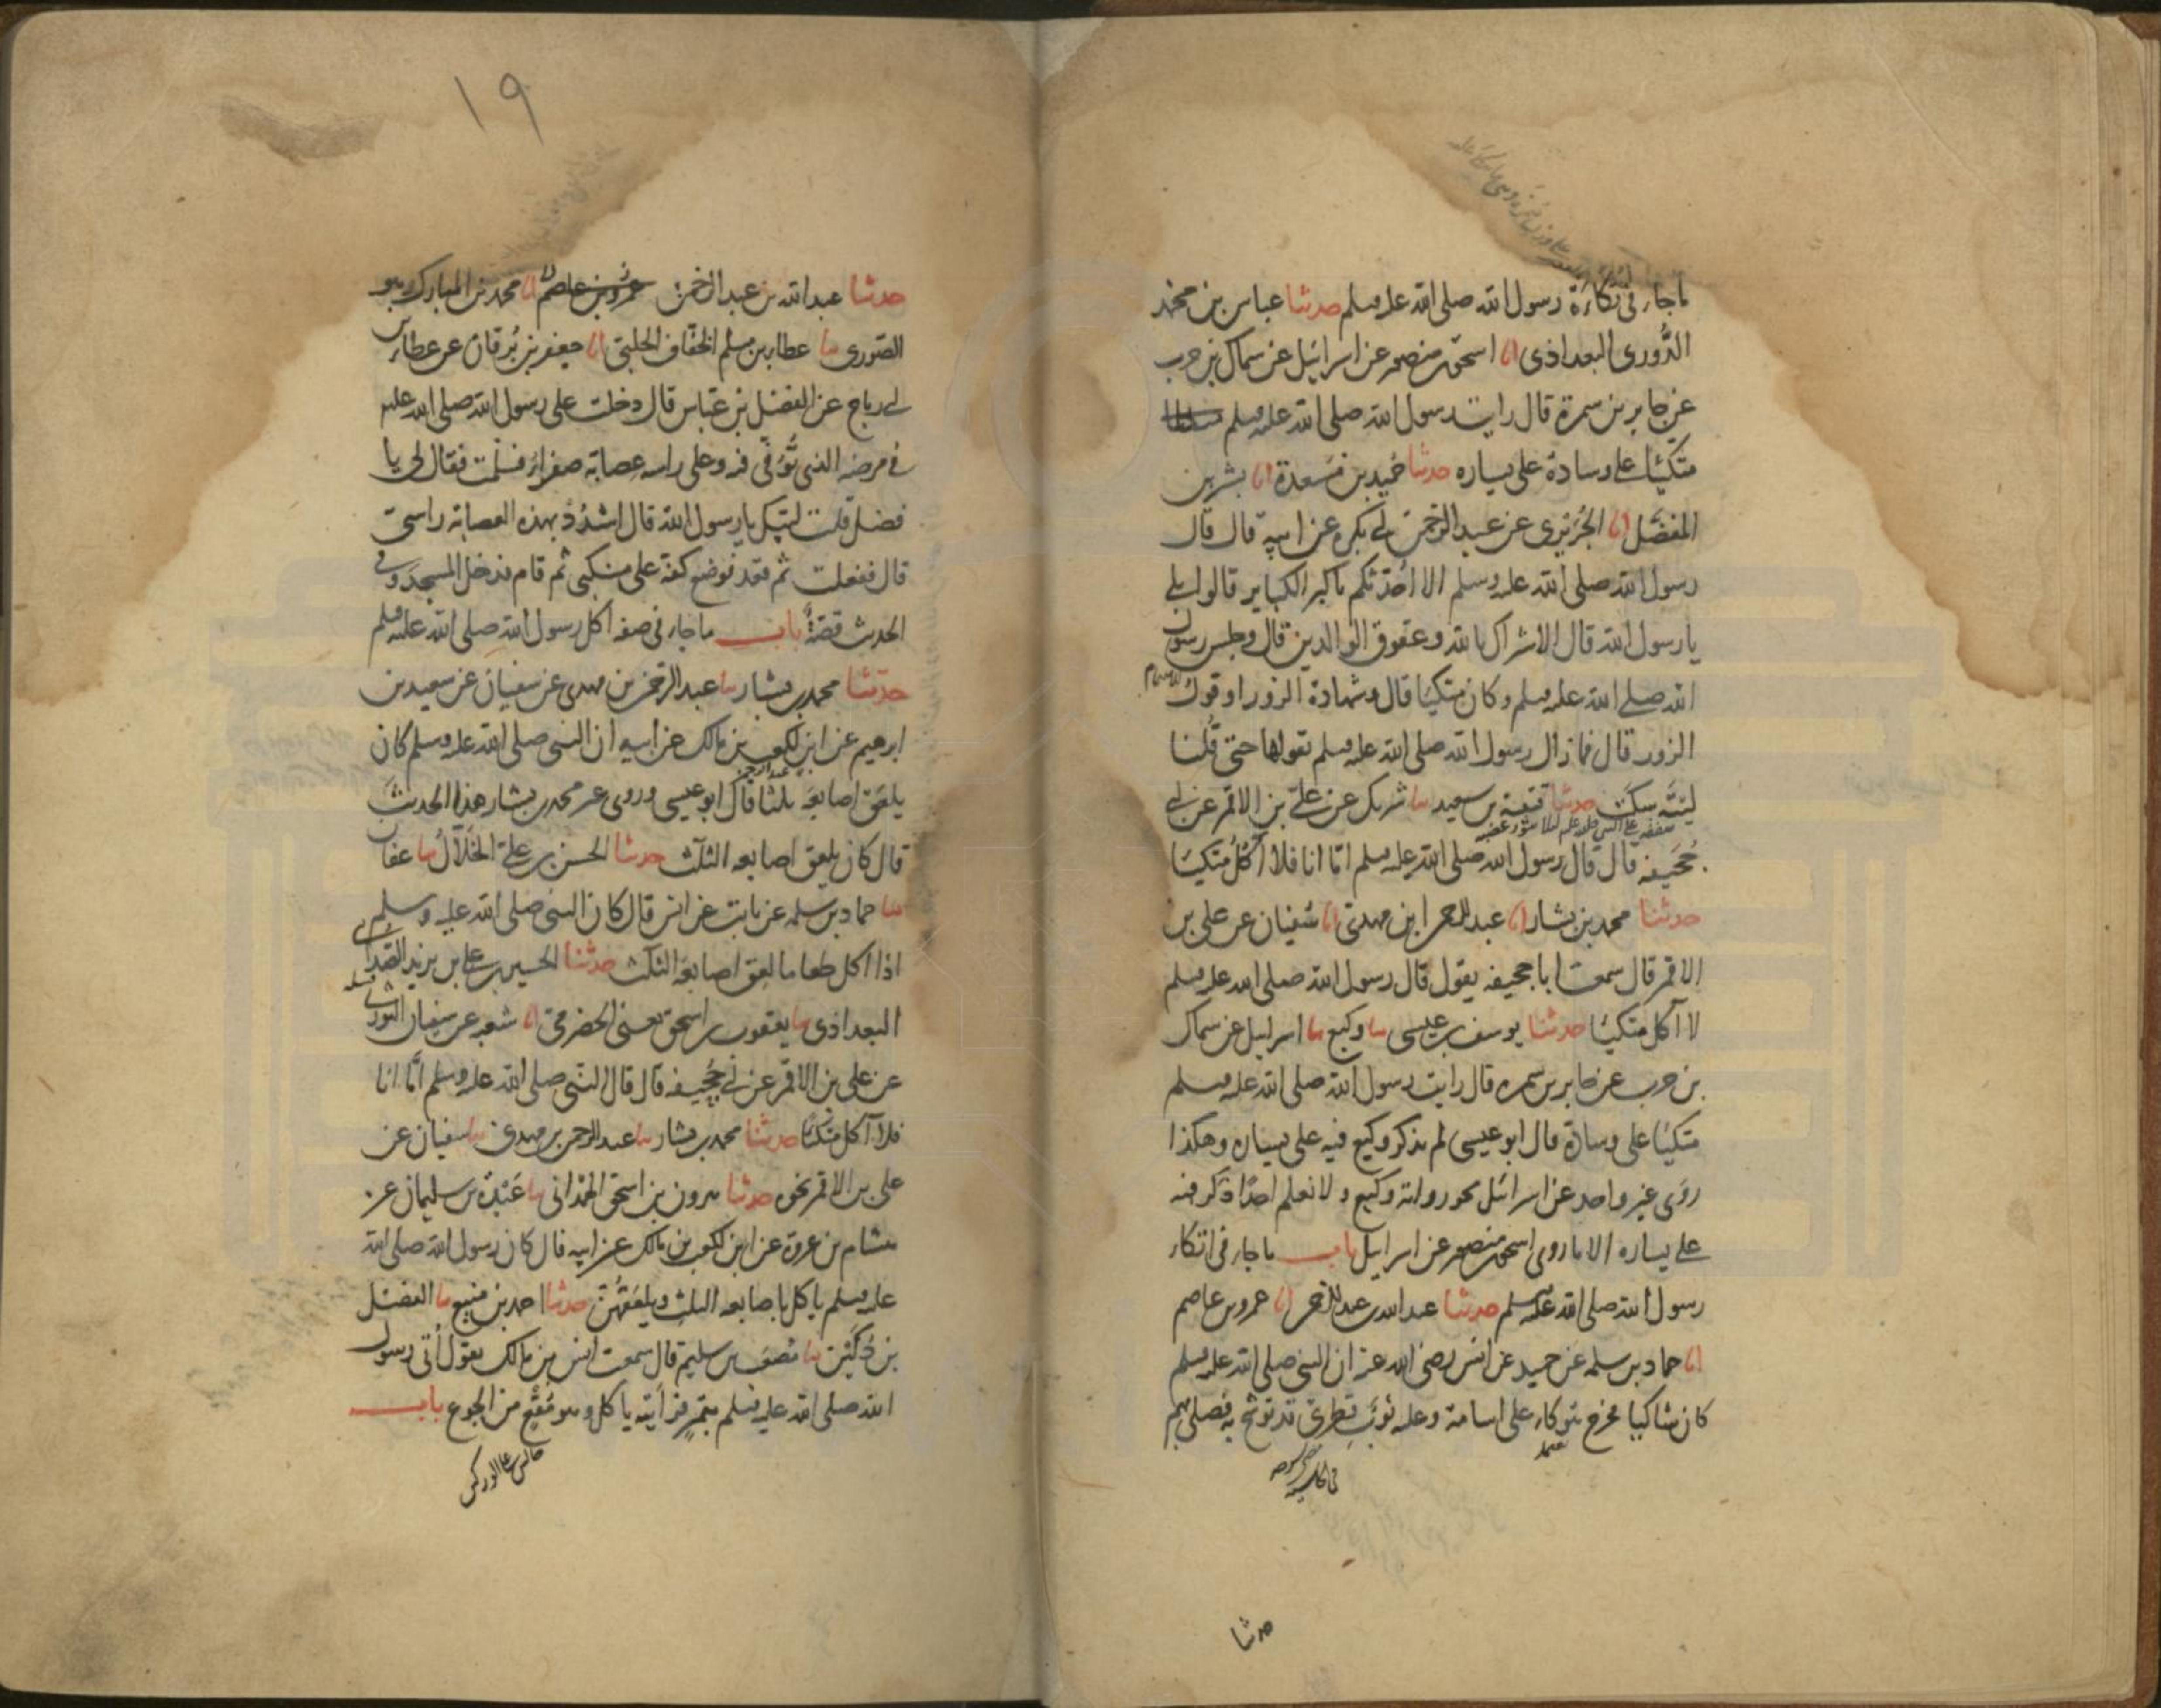 ماجاء في تكاءة رسول الله صلى الله عليه وسلم حدثنا عباس بن محمد
الدُّوري البغداذي انا اسحق بن منصور عن اسرائيل عن سماك بن حرب
عن جابر بن سمرة قال رايت رسول الله صلى الله عليه وسلم
متكئا على وسادة على يساره حدثنا حميد بن مسعدة انا بشر بن
المفضل انا الجُرَيري عن عبد الرحمن بن ابي بكرة عن ابيه قال قال
رسول الله صلى الله عليه وسلم الا احدثكم باكبر الكباير قالوا بلى
يا رسول الله قال الاشراك بالله وعقوق الوالدين قال وجلس رسول
الله صلى الله عليه وسلم وكان متكيا قال وشهادة الزور او قول
الزور قال فما زال رسول الله صلى الله عليه وسلم يقولها حتى قلنا
ليته سكت حدثنا قتيبة بن سعيد نا شريك عن علي بن الاقمر عن ابي
جُحَيفه قال قال رسول الله صلى الله عليه وسلم امّا انا فلا آكُلُ متكيًا
حدثنا محمد بن بشار انا عبد الرحمن ابن مهدي انا سُفيان عن علي بن
الاقمر قال سمعت ابا جحيفه يقول قال رسول الله صلى الله عليه وسلم
لا آكل متكيًا حدثنا يوسف بن عيسى نا وكيع نا اسرايل عن سماك
بن حرب عن جابر بن سمره قال رايت رسول الله صلى الله عليه وسلم
متكيًا على وسادة قال ابو عيسى لم يذكر وكيع فيه على يساره وهكذا
روى غير واحد عن اسرائل نحو رواية وكيع ولا نعلم احدًا ذكر فيه
على يساره الا ما روى اسحق بن منصور عن اسرايل باب ماجاء في اتكاء
رسول الله صلى الله عليه وسلم حدثنا عبد الله بن عبد الرحمن انا عمرو بن عاصم
انا حماد بن سلمه عن حميد عن انس رضي الله عنه ان النبي صلى الله عليه وسلم
كان شاكيا فخرج يتوكاء على اسامة وعليه ثوبٌ قِطري قد توشح به فصلى بهم
حدثنا
١٩
حدثنا عبد الله بن عبد الرحمن عمرو بن عاصم انا محمد بن المبارك وهو
الصوري نا عطاء بن مسلم الخفّاف الحلبي انا جعفر بن بُرقان عن عطاء بن
ابي رباح عن الفضل بن عباس قال دخلت على رسول الله صلى الله عليه
في مرضه الذي تُوُفّي فيه وعلى راسه عصابة صفراءُ فسلمت فقال لي يا
فضل قلت لبيك يا رسول الله قال اشدُد بهذه العصابة راسي
قال ففعلت ثم قعد فوضع كفه على منكبي ثم قام فدخل المسجد وفي
الحديث قصةٌ باب ماجاء في صفة اكل رسول الله صلى الله عليه وسلم
حدّثنا محمد بن بشار نا عبد الرحمن بن مهدي عن سفيان عن سعيد بن
ابرهيم عن ابن لكعب بن مالك عن ابيه ان النبي صلى الله عليه وسلم كان
يلعق اصابعَه ثلثا قال ابو عيسى وروى غير محمد بن بشار هذا الحديثَ
قال كان يلعق اصابعه الثلث حدثنا الحسن بن علي الخَلّالُ نا عفان
نا حماد بن سلمه عن ثابت عن انس قال كان النبي صلى الله عليه وسلم
اذا اكل طعاما لعق اصابعَه الثلث حدثنا الحسين بن علي بن يزيد الصُدائي
البغداذي نا يعقوب بن اسحق يعني الحضرمي انا شعبه عن سفيان الثوري
عن علي بن الاقمر عن ابي جُحيفه قال قال النبي صلى الله عليه وسلم امّا انا
فلا آكل متكيًا حدثنا محمد بن بشار نا عبد الرحمن بن مهدي نا سفيان عن
علي بن الاقمر نحوه حدثنا هرون بن اسحق الهمْداني نا عَبْدةُ بن سليمان عن
هشام بن عروة عن ابن لكعب بن مالك عن ابيه قال كان رسول الله صلى الله
عليه وسلم ياكل باصابعه الثلث ويلعَقُهُنَّ حدثنا احمد بن منيع نا الفضل
بن دُكَيْن نا مُصعَب بن سليم قال سمعت انس بن مالك يقول أتي رسول
الله صلى الله عليه وسلم بتمرٍ فرأيته ياكل وهو مُقْعٍ من الجوع باب